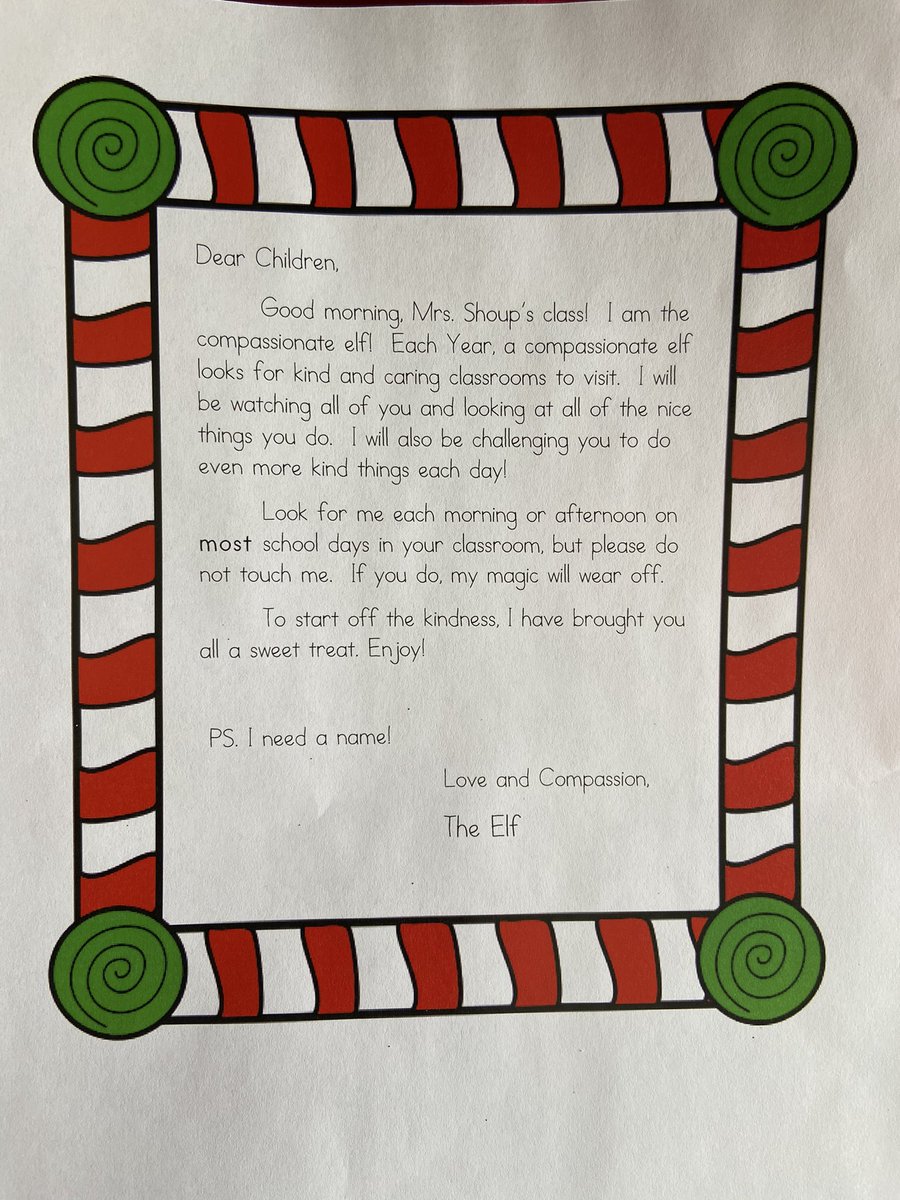 Dear Children,
Good morning, Mrs. Shoup's class! I am the
compassionate elf! Each Year, a compassionate elf
looks for kind and caring classrooms to visit. I will
be watching all of you and looking at all of the nice
things you do. I will also be challenging you to do
even more kind things each day!
Look for me each morning or afternoon on
most school days in your classroom, but please do
not touch me. If you do, my magic will wear off.
To start off the kindness, I have brought you
all a sweet treat. Enjoy!
PS. I need a name!
Love and Compassion,
The Elf